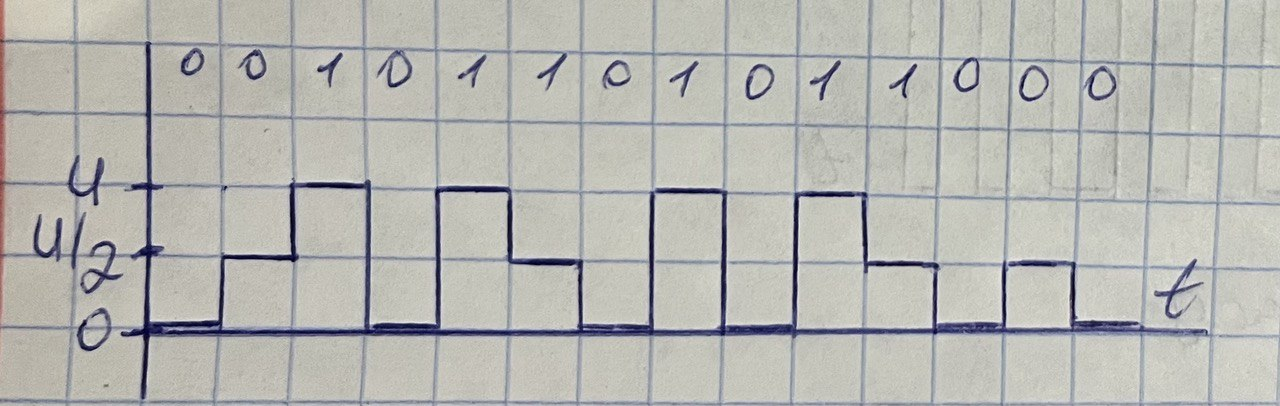 0 0 1 0 1 1 0 1 0 1 1 0 0 0
U
U/2
0
t